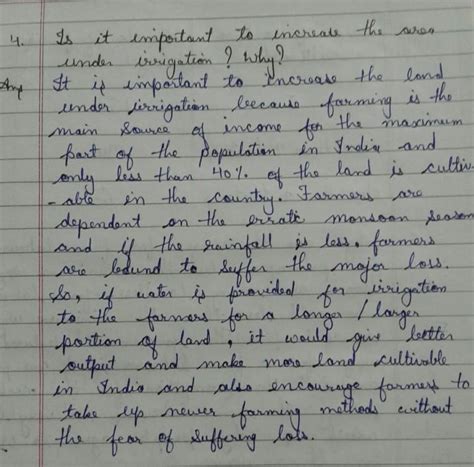 4. Is it important to increase the area
under irrigation? Why?
Ans It is important to increase the land
under irrigation because farming is the
main source of income for the maximum
part of the population in India and
only less than 40% of the land is cultiv-
-able in the country. Farmers are
dependent on the erratic monsoon season
and if the rainfall is less, farmers
are bound to suffer the major loss.
So, if water is provided for irrigation
to the farmers for a longer / larger
portion of land, it would give better
output and make more land cultivable
in India and also encourage farmers to
take up newer farming methods without
the fear of suffering loss.